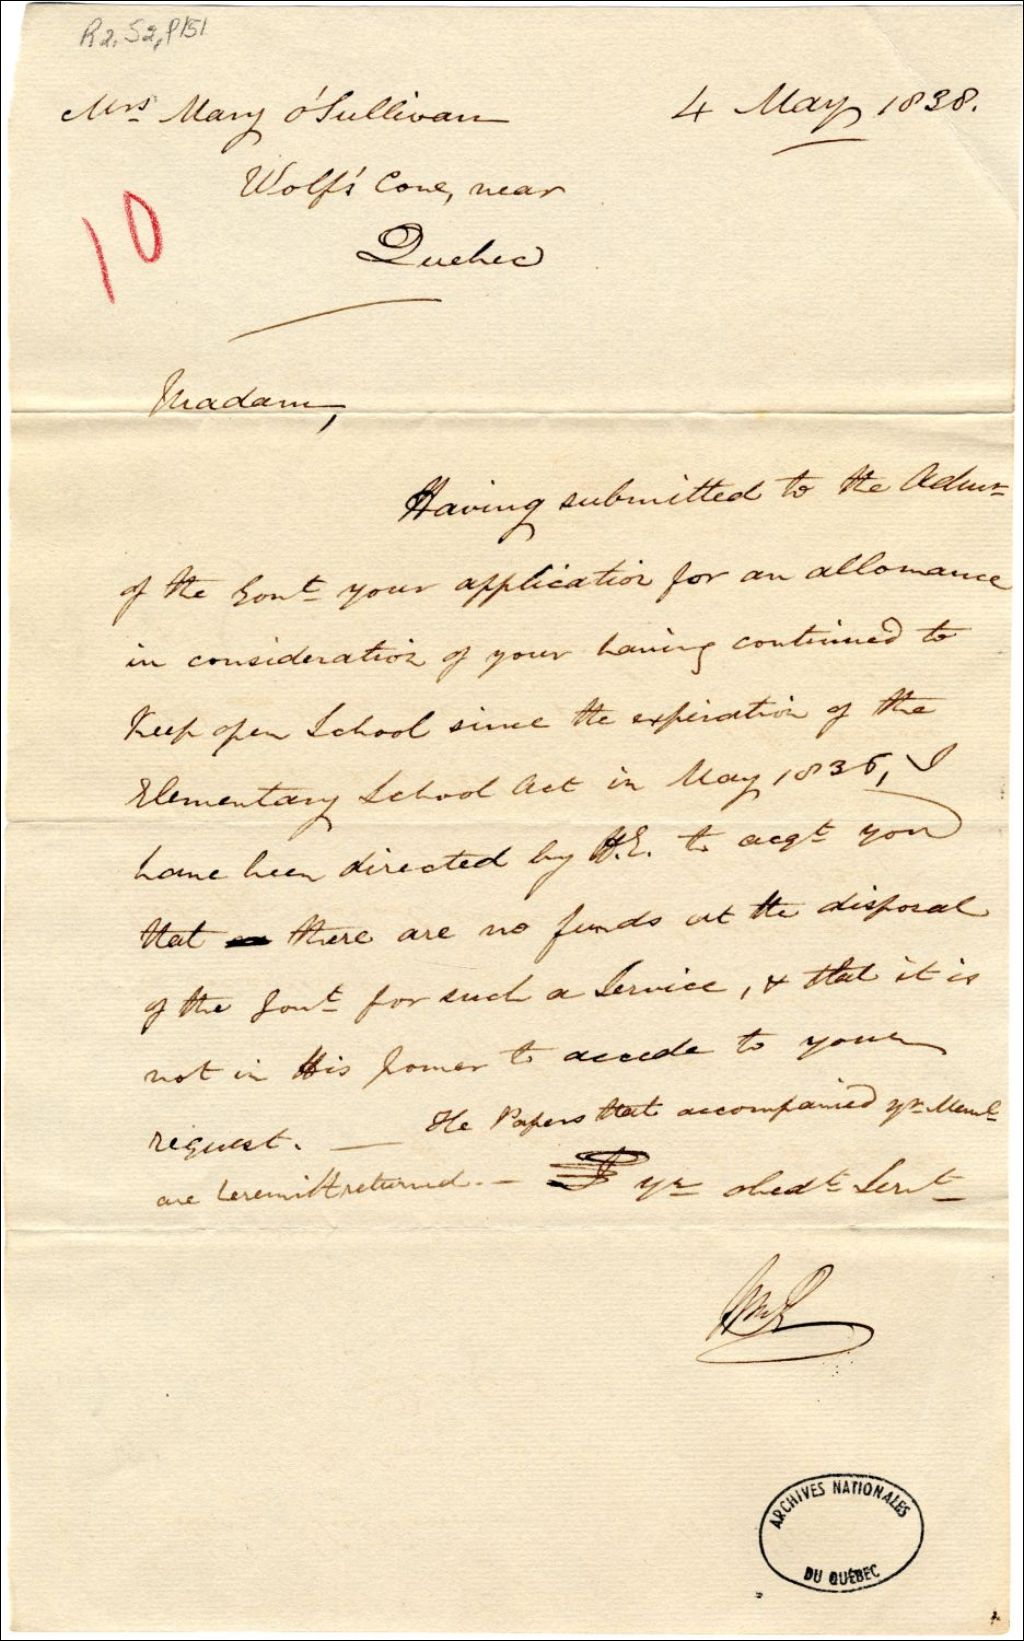 R2, S2, P151
Mrs Mary o'Sullivan
4 May 1838.
Wolf's Cove, near
Quebec
10
Madam,
Having submitted to the Admr
of the Govt your application for an allowance
in consideration of your having continued to
Keep open School since the expiration of the
Elementary School Act in May 1836, I
have been directed by H.E. to acqt you
that there are no funds at the disposal
of the Govt for such a Service, & that it is
not in His power to accede to your
request. — The Papers that accompanied yr Meml
are herewith returned. — yr obedt Servt
ARCHIVES NATIONALES
DU QUÉBEC